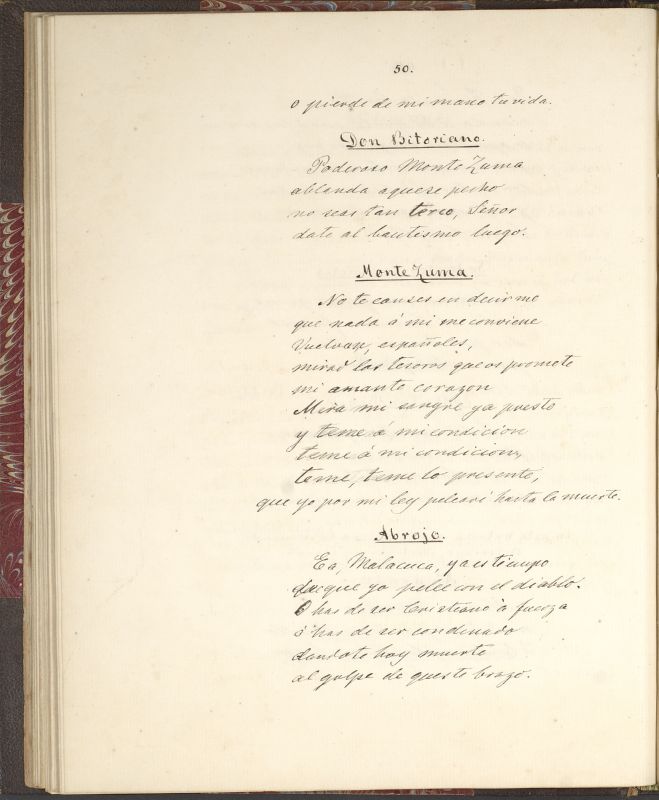 50.
o pierde de mi mano tu vida.
Don Bitoriano.
Poderoso Monte Zuma
ablanda aquese pecho
no seas tan terco, Señor
date al bautismo luego.
Monte Zuma.
No te canses en decirme
que nada á mi me conviene
Vuelvan, españoles,
mirad los tesoros que os promete
mi amante corazon
Mira mi sangre ya presto
y teme á mi condicion
teme á mi condicion,
teme, teme lo presente,
que yo por mi ley peleari hasta la muerte.
Abrojo.
Ea, Malacuca, ya es tiempo
que yo pelee con el diablo.
O has de ser Cristiano a fuerza
ó has de ser condenado
dandote hoy muerte
al golpe de queste brazo.